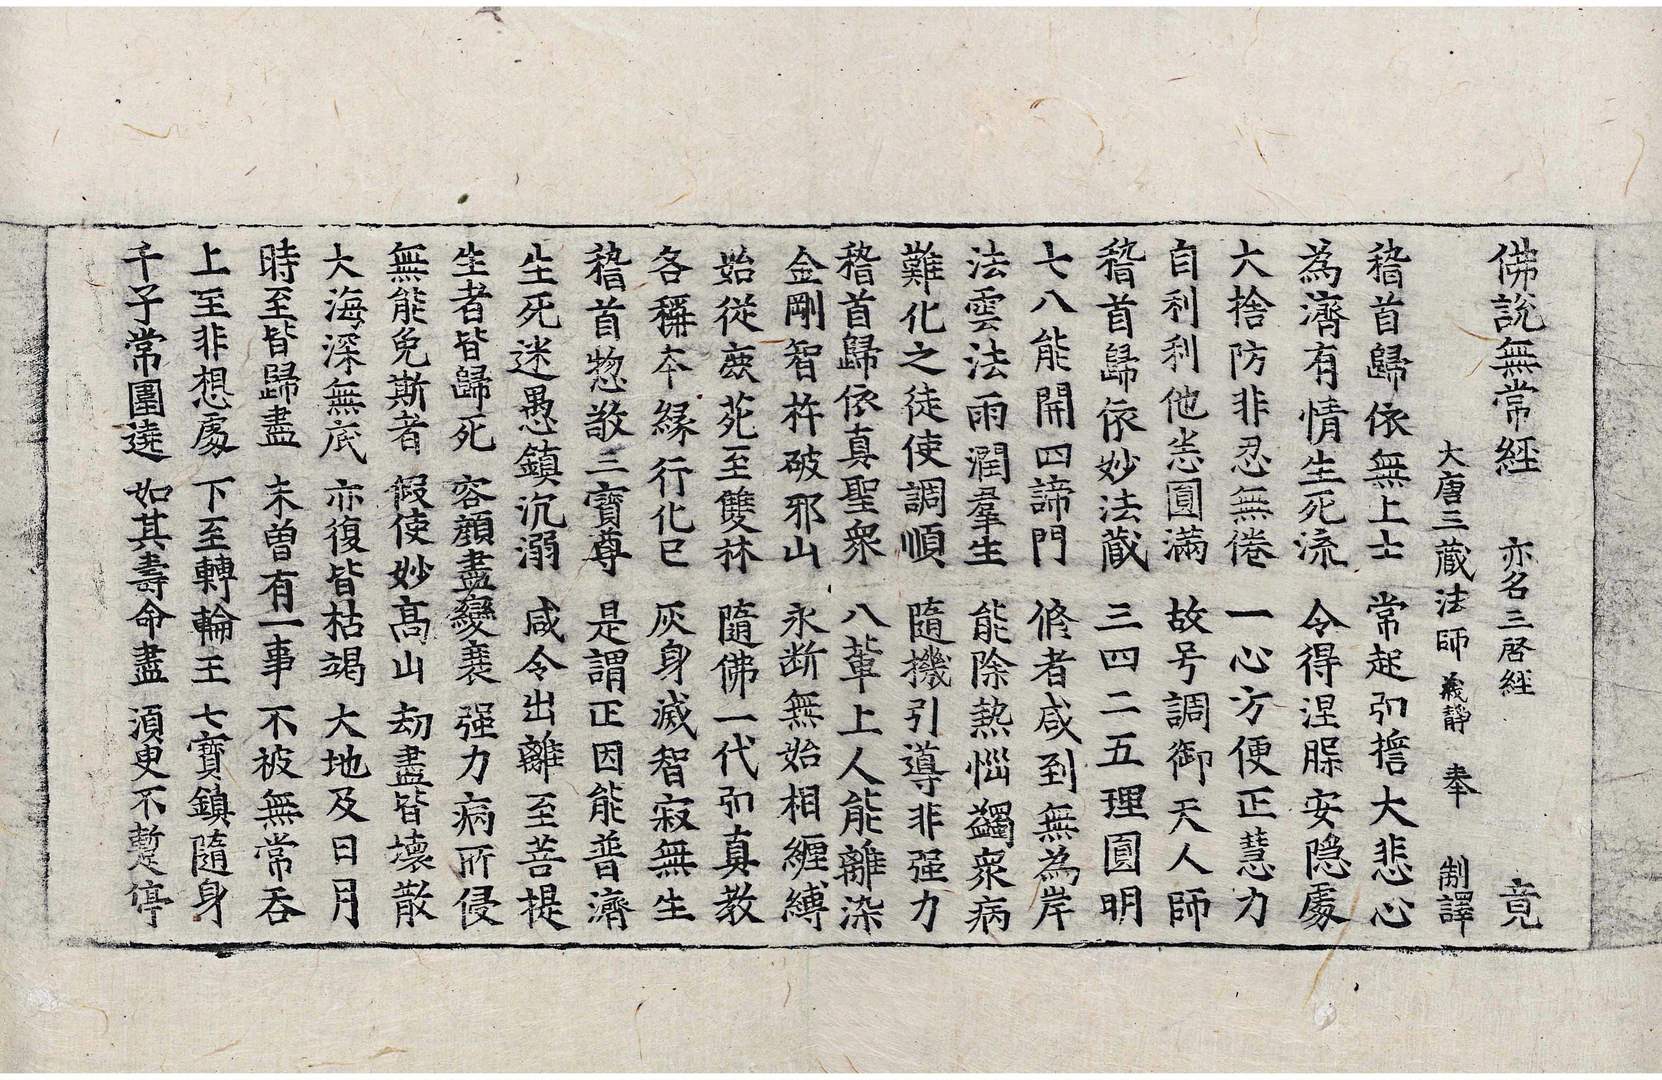 佛說無常經　亦名三啓經　竟
大唐三藏法師　義靜　奉　制譯
稽首歸依無上士　常起弘誓大悲心
為濟有情生死流　令得涅槃安隱處
大捨防非忍無倦　一心方便正慧力
自利利他悉圓滿　故号調御天人師
稽首歸依妙法藏　三四二五理圓明
七八能開四諦門　修者咸到無為岸
法雲法雨潤羣生　能除熱惱蠲衆病
難化之徒使調順　隨機引導非强力
稽首歸依真聖衆　八輩上人能離染
金剛智杵破邪山　永断無始相纏縛
始從鹿苑至雙林　隨佛一代弘真教
各稱本緣行化已　灰身滅智寂無生
稽首惣敬三寶尊　是謂正因能普濟
生死迷愚鎮沉溺　咸令出離至菩提
生者皆歸死　容顏盡變衰　强力病所侵
無能免斯者　假使妙高山　劫盡皆壞散
大海深無底　亦復皆枯竭　大地及日月
時至皆歸盡　未曾有一事　不被無常吞
上至非想處　下至轉輪王　七寶鎮隨身
千子常圍遶　如其壽命盡　湏臾不蹔停